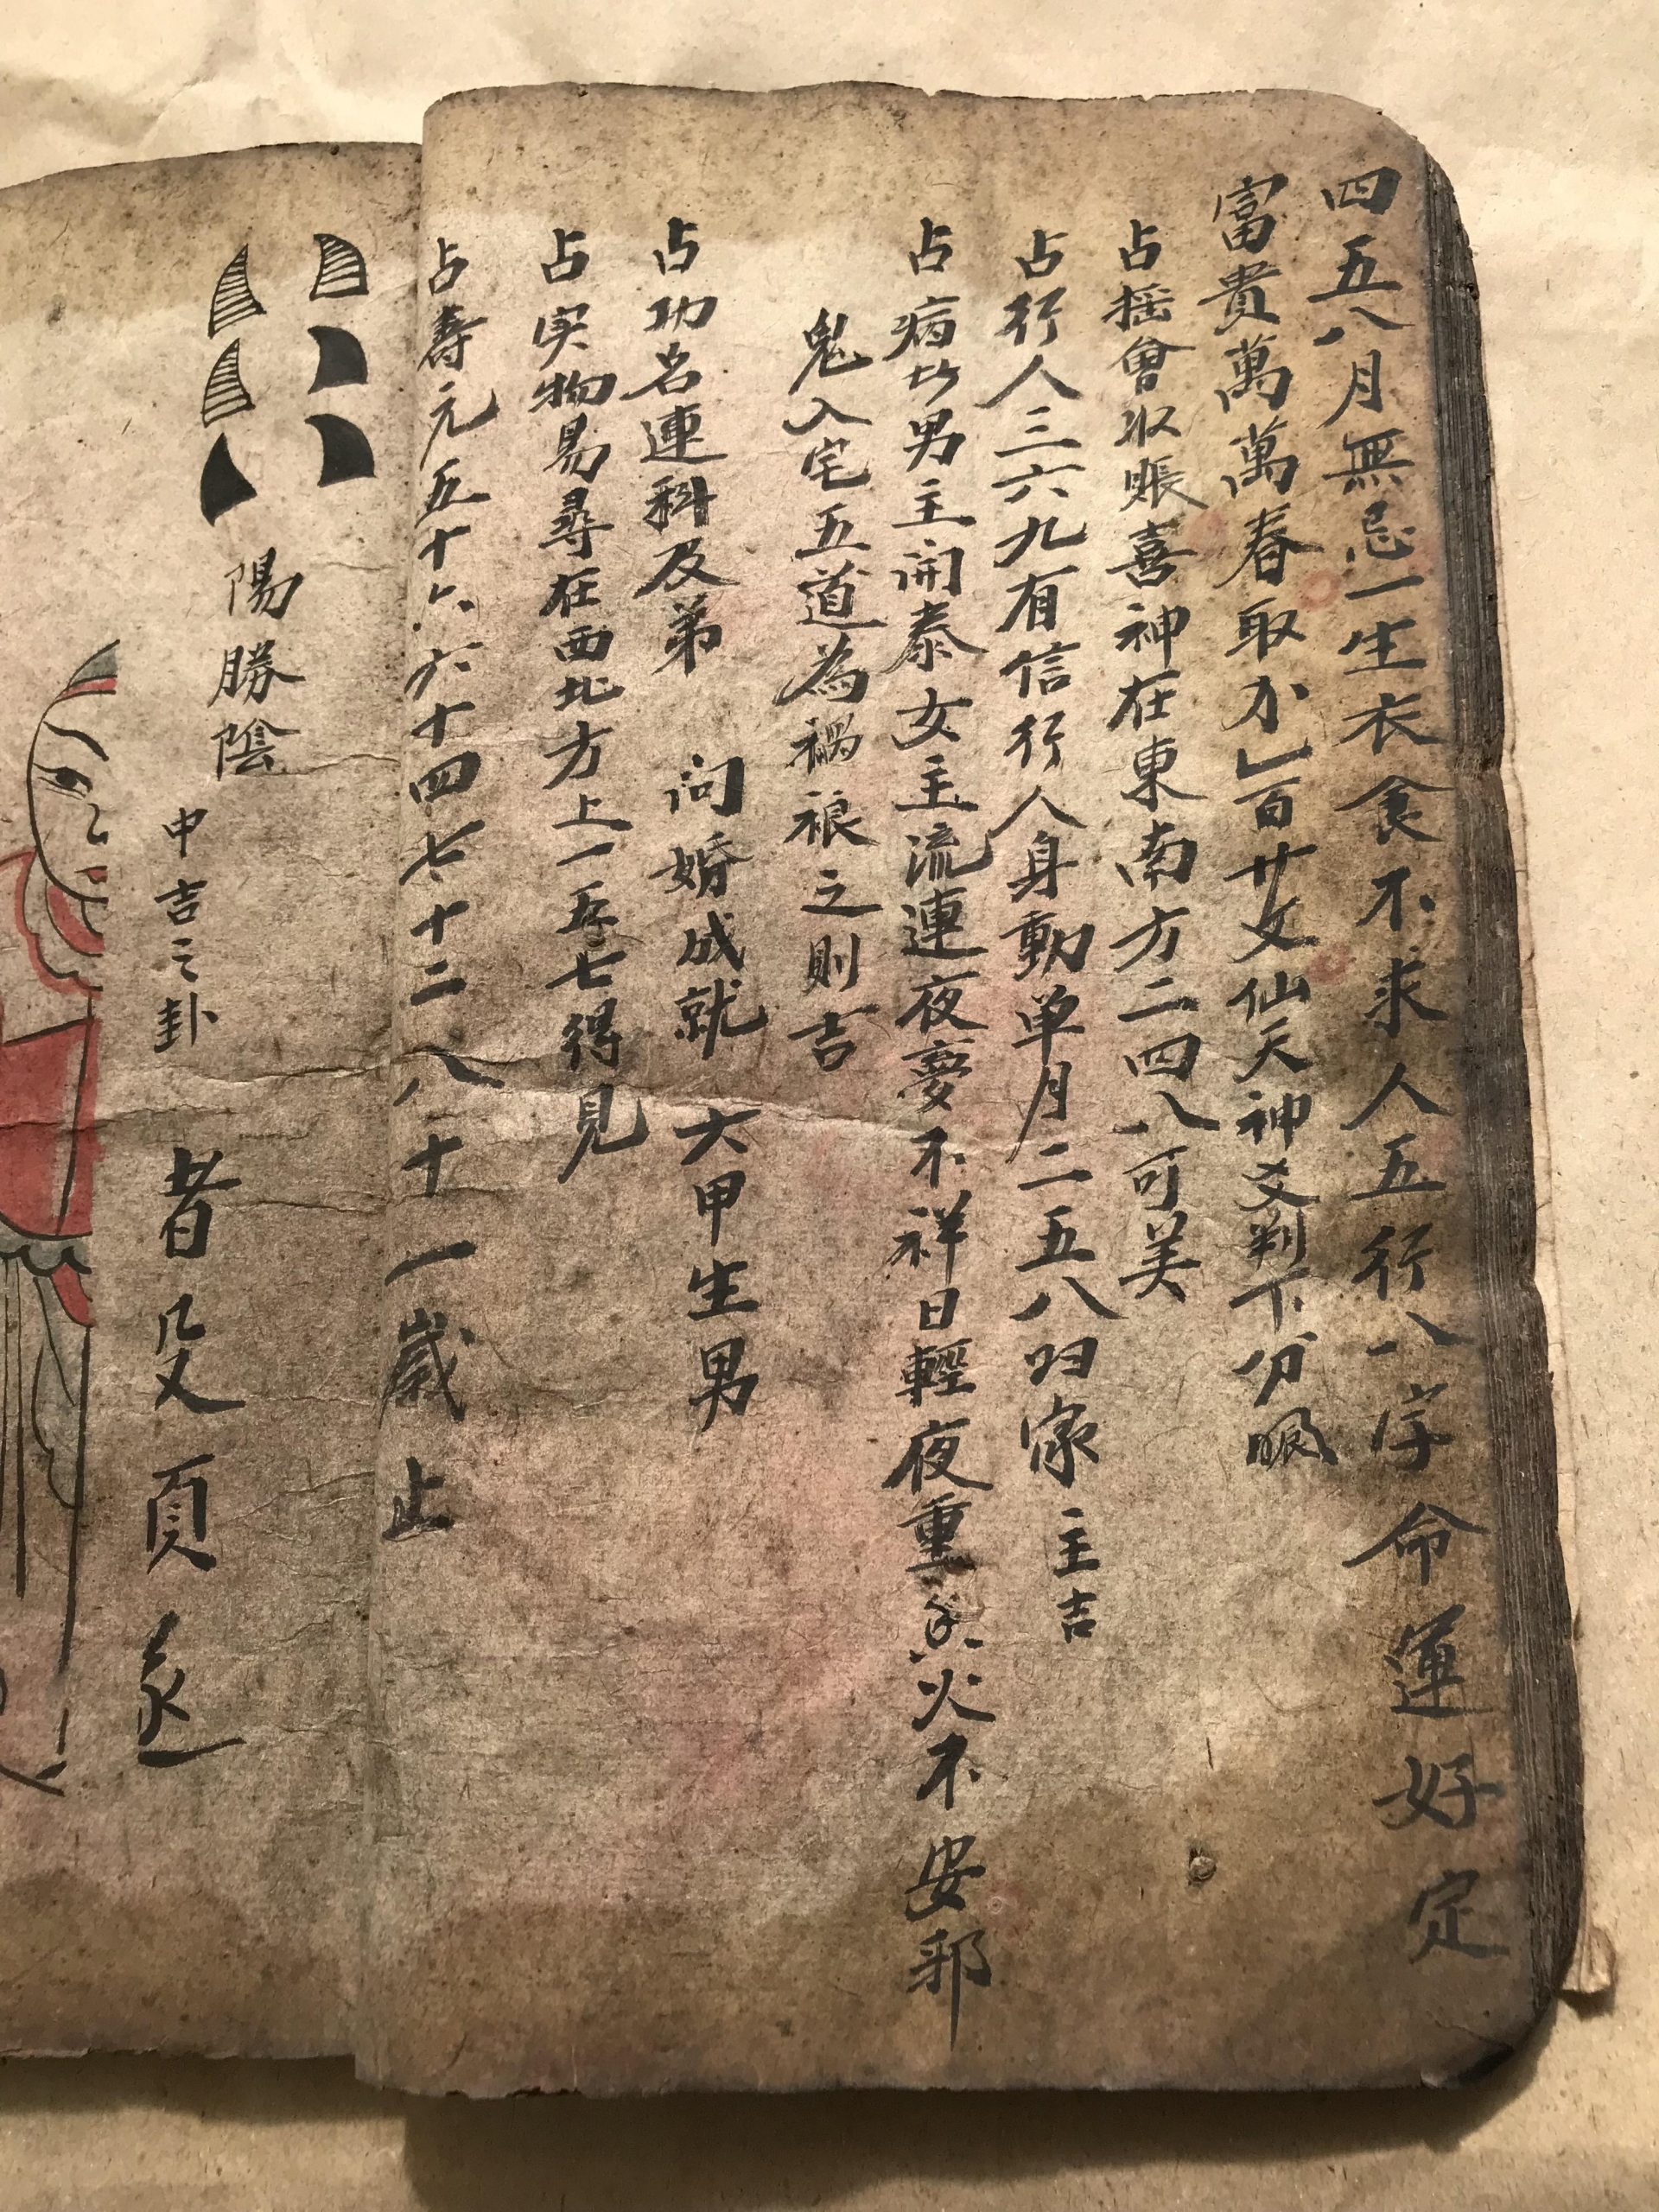 四五八月無忌一生衣食不求人五行八字命運好定
富貴萬萬春取 百廿文仙天神爻判下分
占摇會收賬喜神在東南方二四八可美
占行人三六九有信行人身動单月二五八归家主吉
占病 男主開泰女主流連夜夢不祥日輕夜重 火不安邪
鬼入宅五道為禍禳之則吉
占功名連科及弟 问婚成就 六甲生男
占実物易尋在西北方上一五七得見
占壽元五十六六十四七十二八十一歲止
陽勝陰
中吉之卦
昔 頁